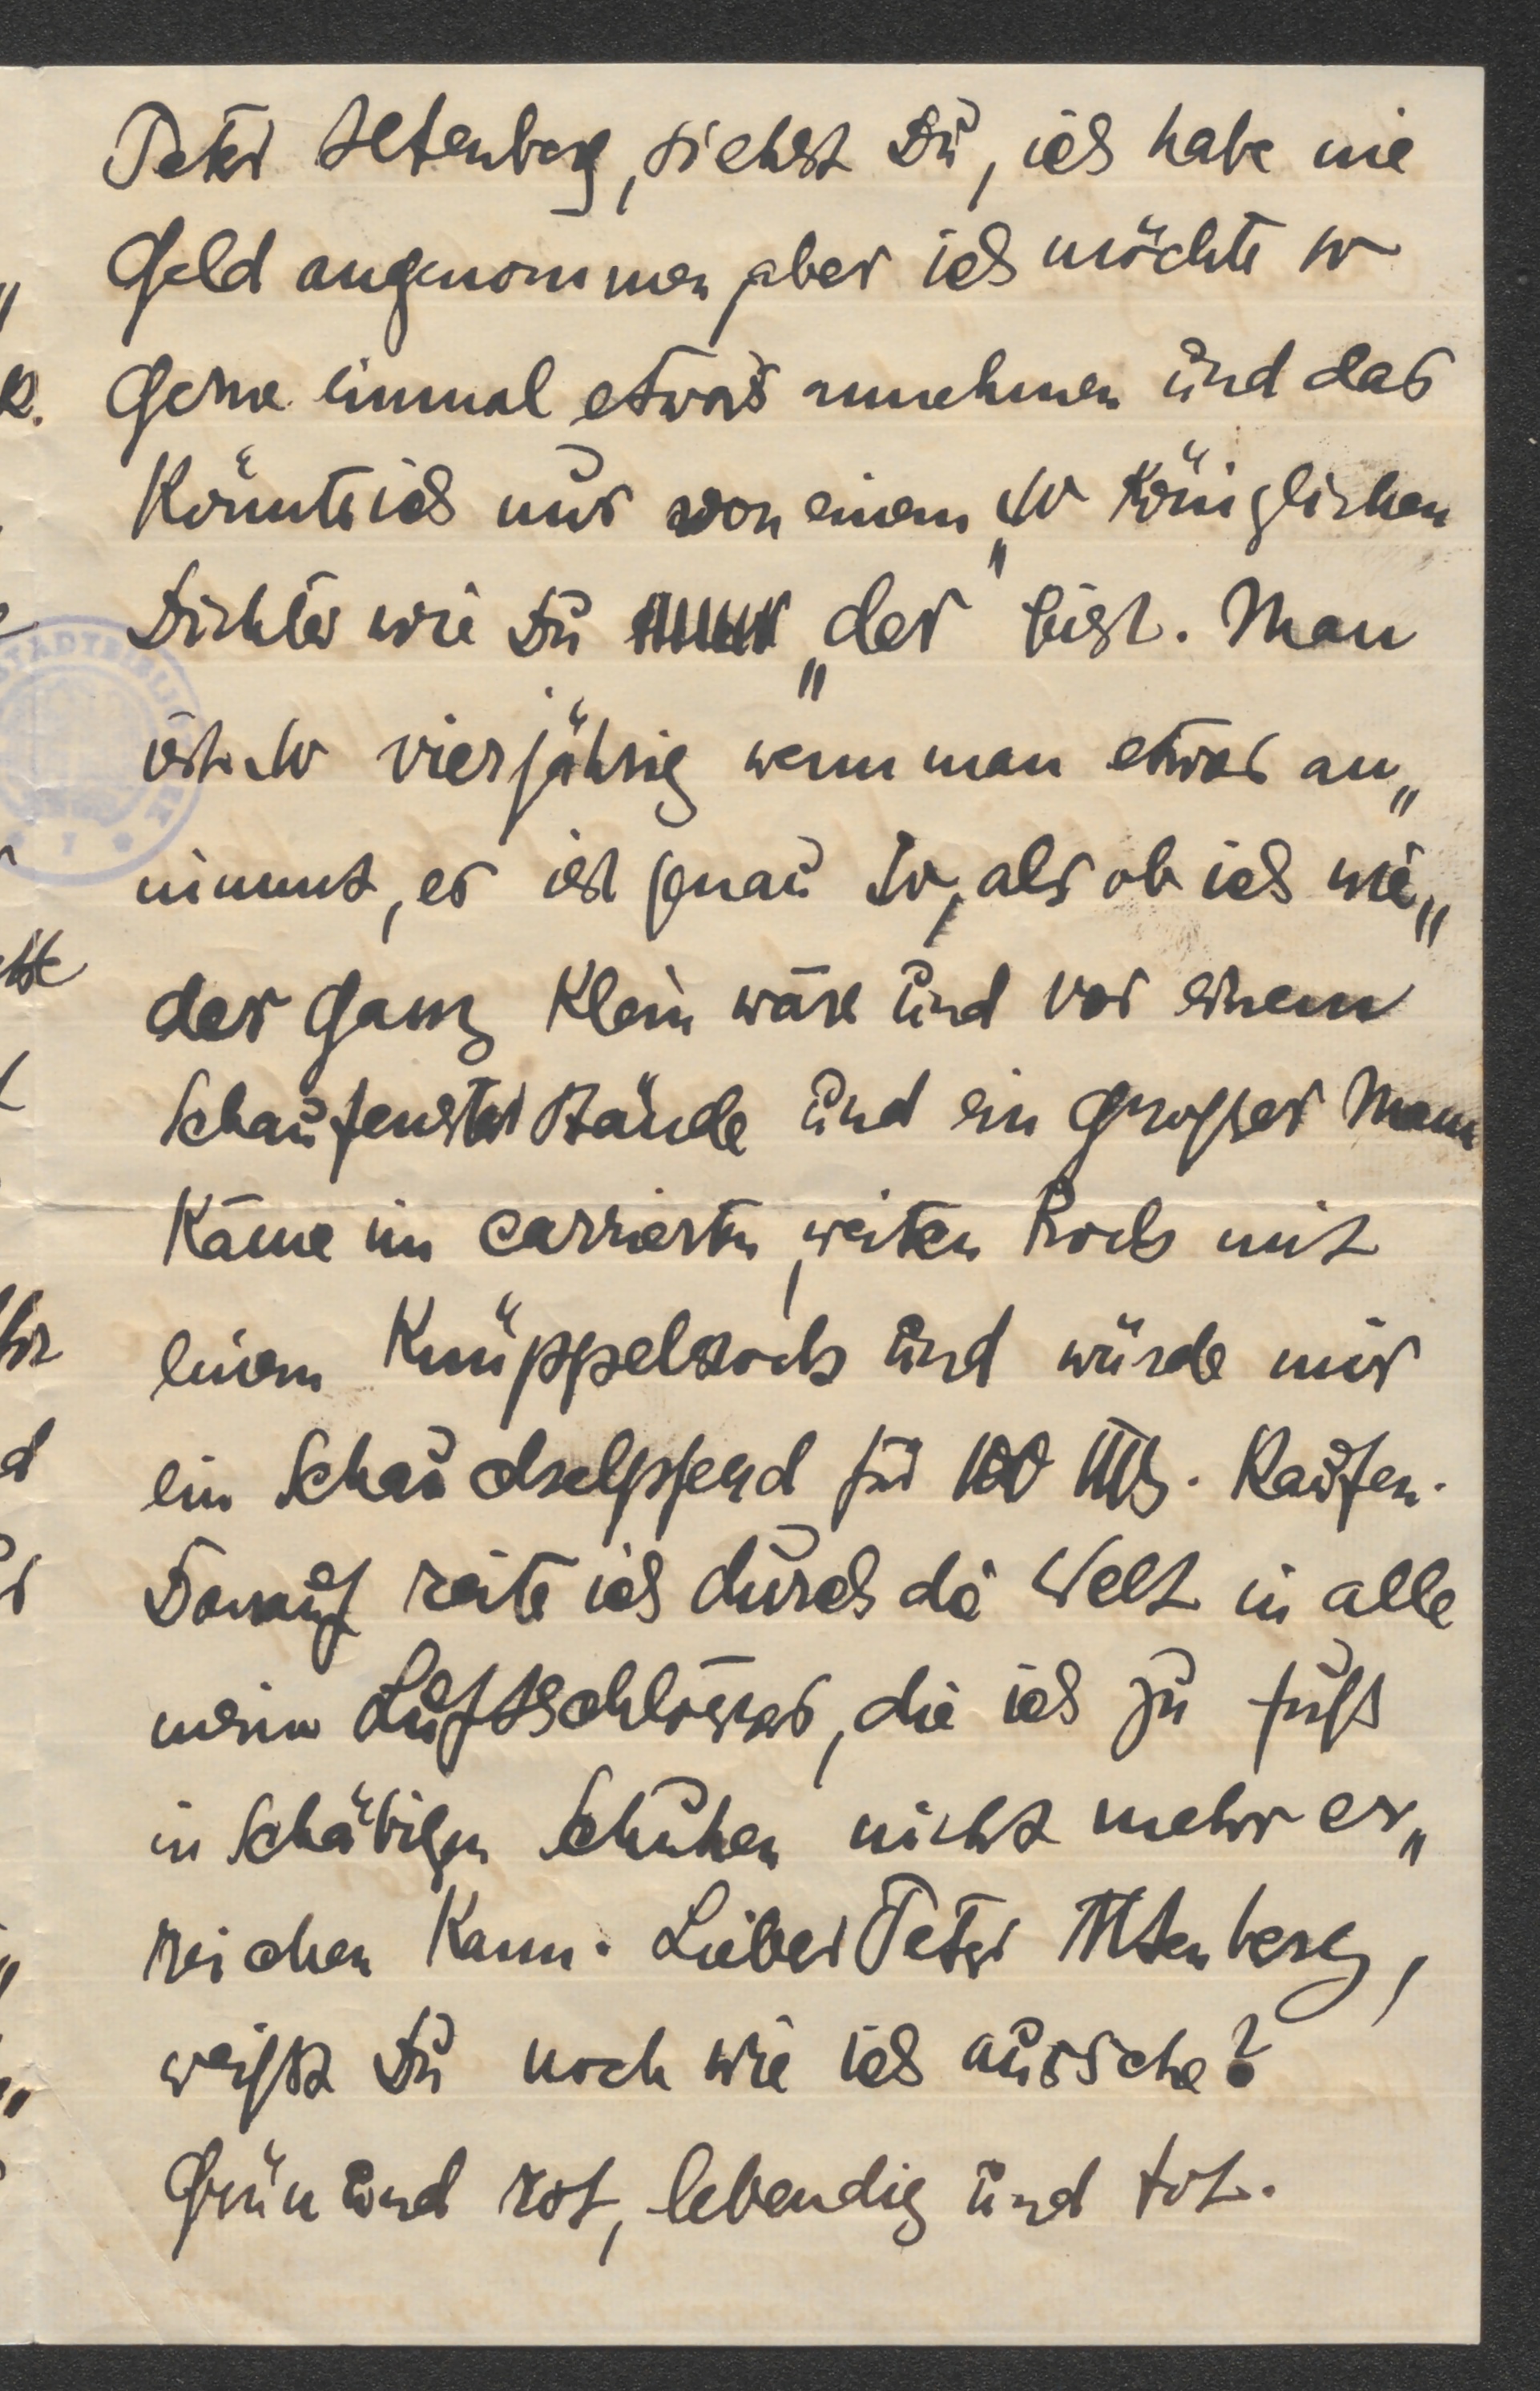 Peter Altenberg, siehst Du, ich habe nie
Geld angenommen, aber ich möchte so
Gerne einmal etwas annehmen und das
Könnte ich nur von einem so Königlichen
Dichter wie Du „der" bist. Man
ist so vierjährig wenn man etwas an„
nimmt, es ist genau so, als ob ich wie„
der Ganz Klein wäre und vor einem
Schaufenster stände und ein Grosser Mann
Käme im carrierten, weiten Rock mit
einem Knüppelstock und würde mir
ein Schauckelpferd für 100 Mk. Kaufen.
Darauf reite ich durch die Welt in alle
meine Luftschlösser, die ich zu fuß
in Schäbigen Schuhen nicht mehr er„
reichen Kann. Lieber Peter Altenberg,
weißt Du noch wie ich aussehe?
Grün und rot, lebendig und tot.